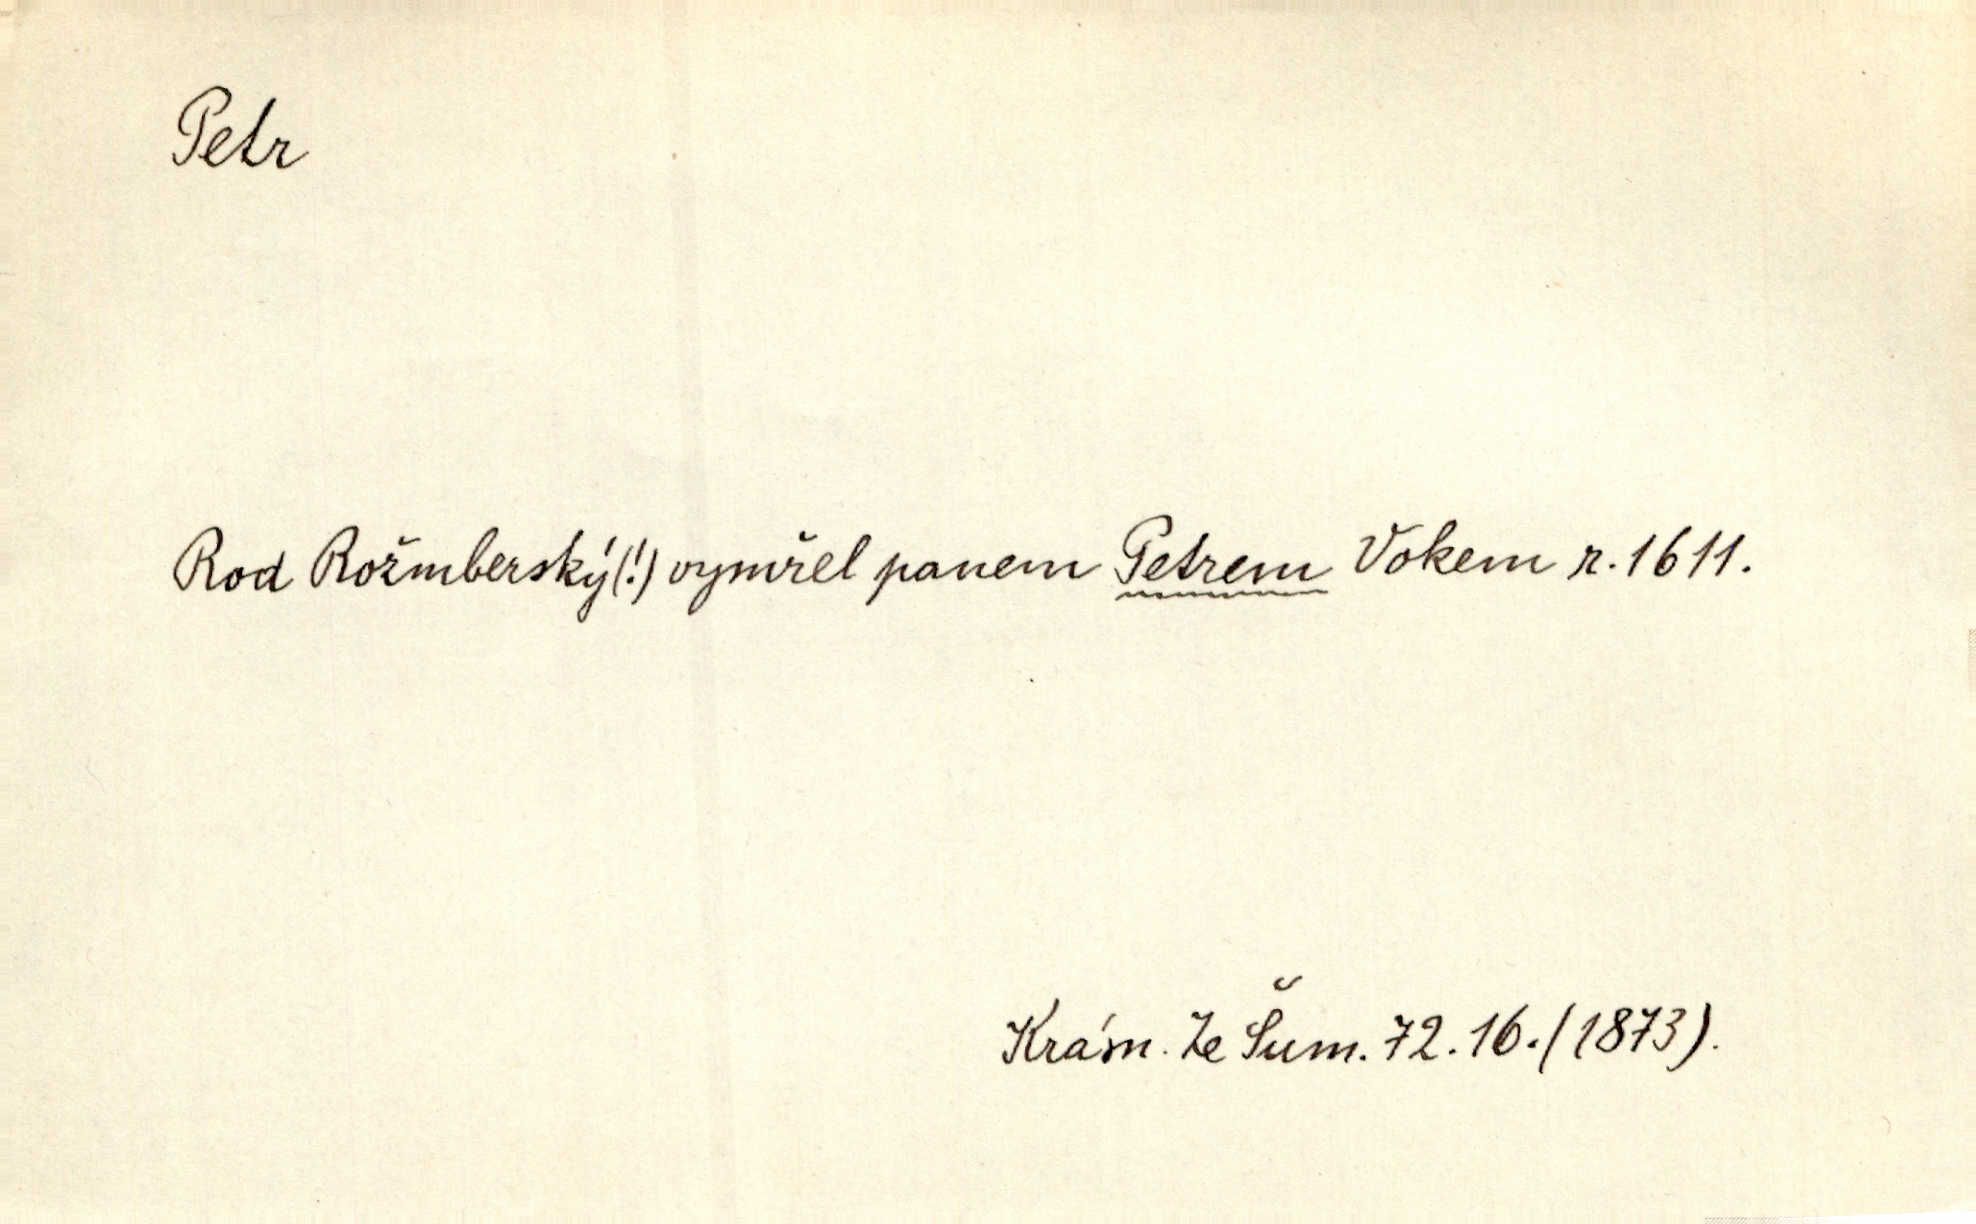 Petr
Rod Rožmberský(!) vymřel panem Petrem Vokem r. 1611.
Krásn. Ze Šum. 72. 16. (1873).